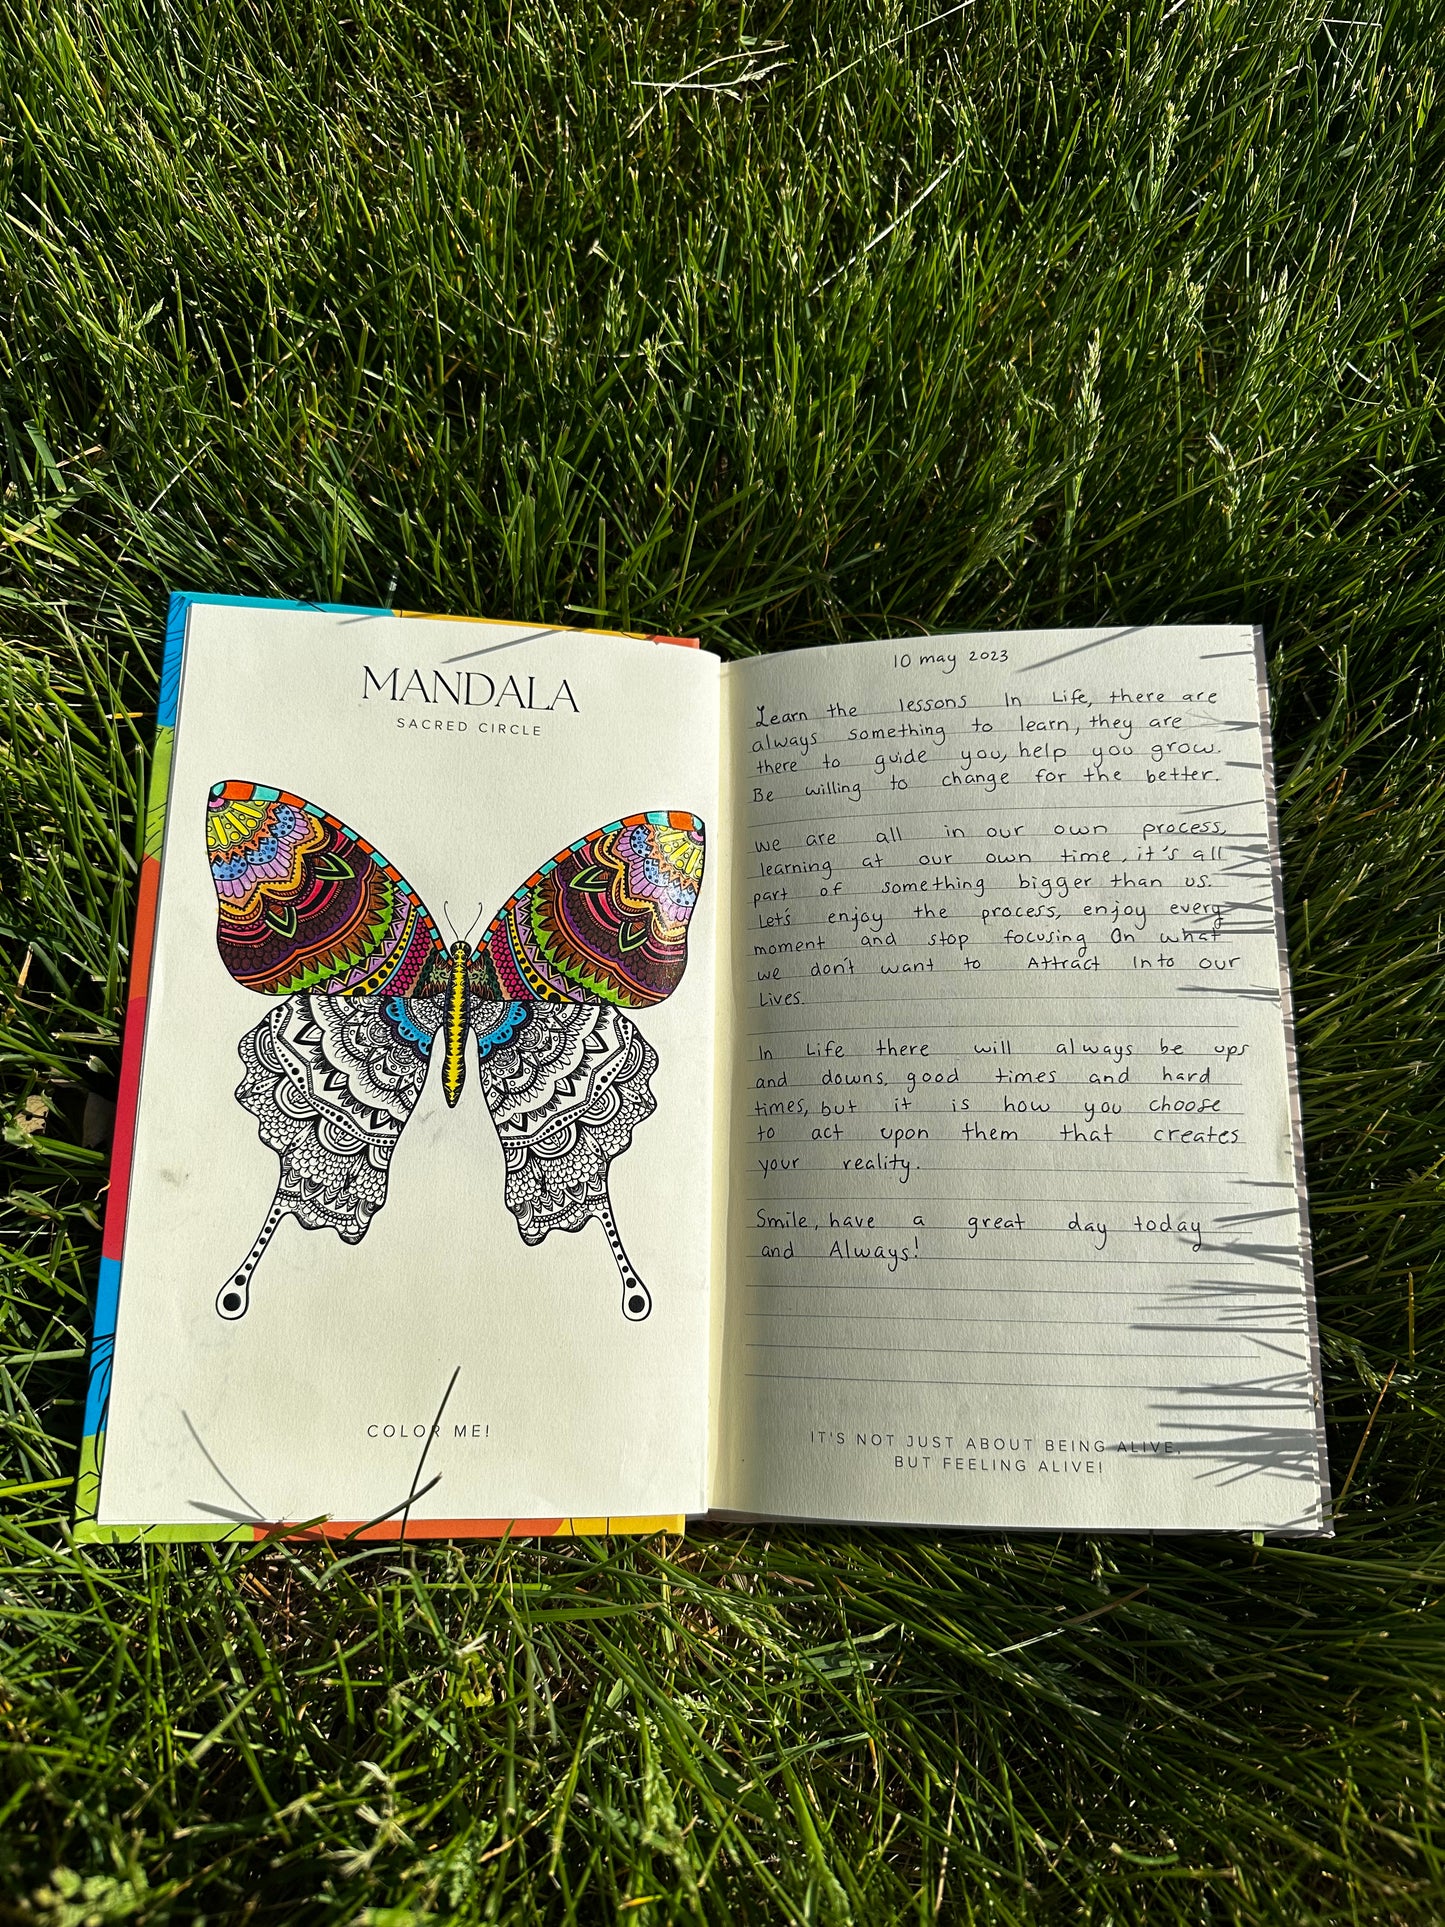 MANDALA
SACRED CIRCLE
COLOR ME!
10 may 2023
Learn the lessons In Life, there are
always something to learn, they are
there to guide you, help you grow.
Be willing to change for the better.
we are all in our own process,
learning at our own time, it's all
part of something bigger than us.
Let's enjoy the process, enjoy every
moment and stop focusing On what
we don't want to Attract Into our
Lives.
In Life there will always be ups
and downs, good times and hard
times, but it is how you choose
to act upon them that creates
your reality.
Smile, have a great day today
and Always!
IT'S NOT JUST ABOUT BEING ALIVE,
BUT FEELING ALIVE!